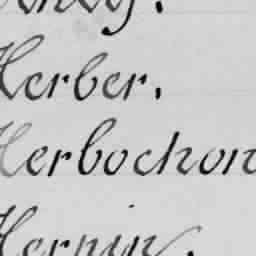 Herber.
Herbochon
Hernin.